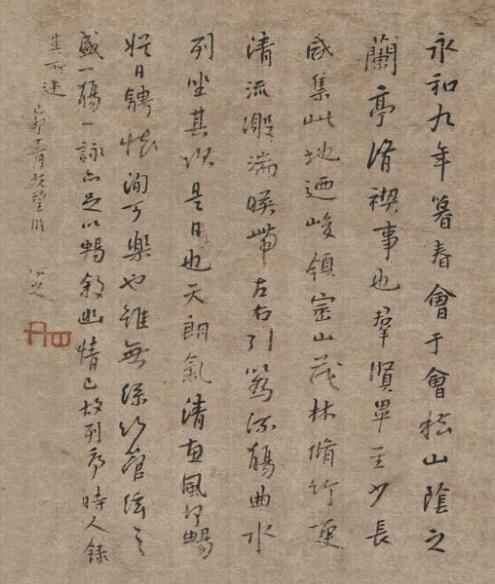 永和九年暮春會于會稽山陰之
蘭亭脩禊事也羣賢畢至少長
咸集此地迺峻領崇山茂林脩竹更
清流激湍暎帶左右引為流觴曲水
列坐其次是日也天朗氣清惠風和暢
娛目騁懷洵可樂也雖無絲竹管弦之
盛一觴一詠亦足以暢敘幽情已故列序時人錄
其所述
己卯既望